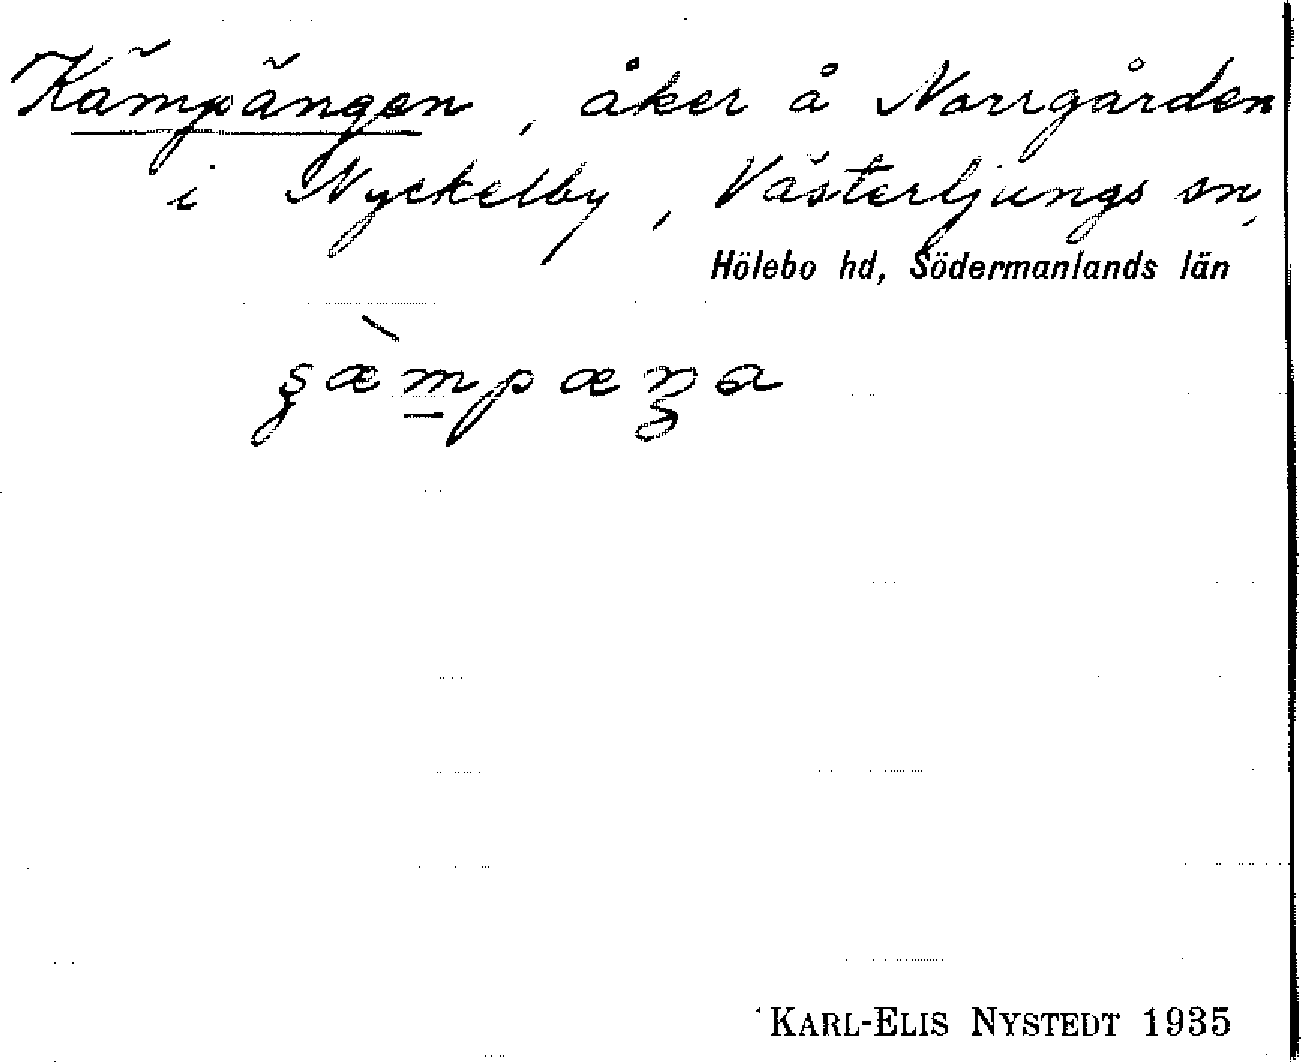 Kämpängen, åker å Norrgården
i Nyckelby, Västerljungs sn,
Hölebo hd, Södermanlands län
KARL-ELIS NYSTEDT 1935